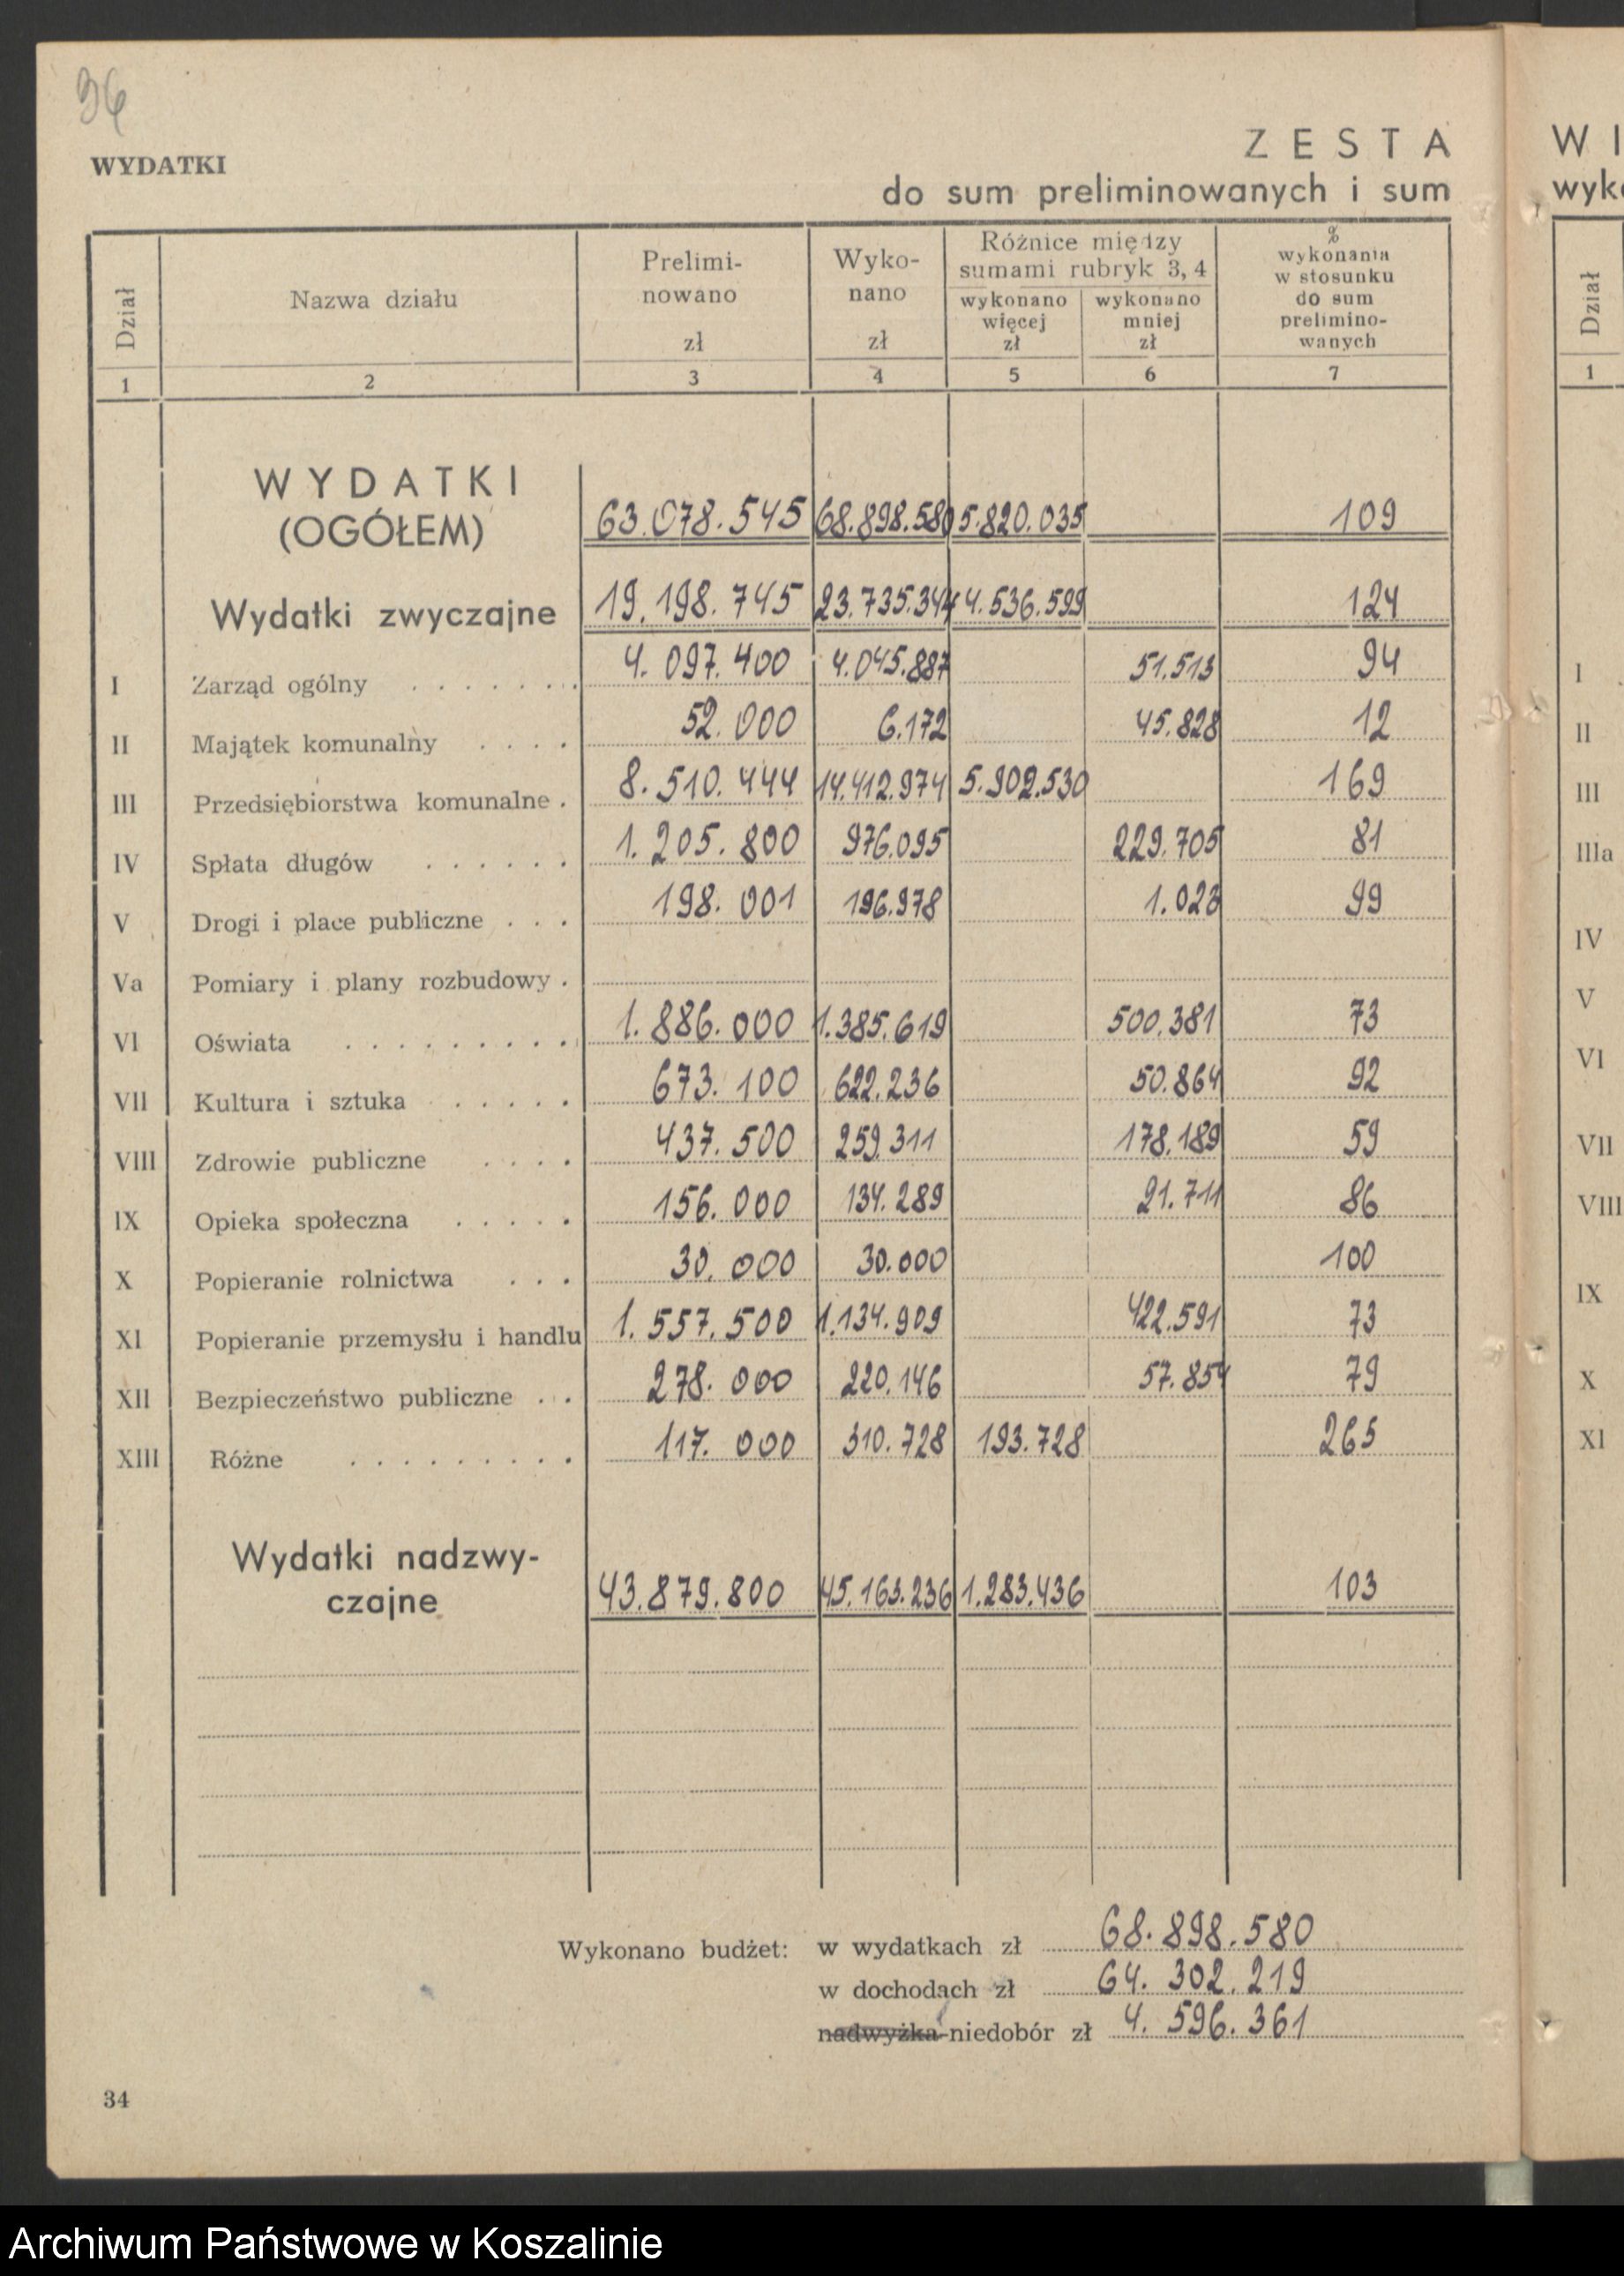 96
WYDATKI
ZESTA
do sum preliminowanych i sum
Dział
Nazwa działu
Prelimi-
nowano
zł
Wyko-
nano
zł
Różnice między
sumami rubryk 3, 4
wykonano
więcej
zł
wykonano
mniej
zł
%
wykonania
w stosunku
do sum
prelimino-
wanych
1 2 3 4 5 6 7
WYDATKI
(OGÓŁEM) 63.078.545 68.898.580 5.820.035 109
Wydatki zwyczajne 19.198.745 23.735.344 4.536.599 124
I Zarząd ogólny . . . . . . . 4.097.400 4.045.887 51.513 94
II Majątek komunalny . . . . 52.000 6.172 45.828 12
III Przedsiębiorstwa komunalne . 8.510.444 14.412.974 5.902.530 169
IV Spłata długów . . . . . . 1.205.800 976.095 229.705 81
V Drogi i place publiczne . . . 198.001 196.978 1.023 99
Va Pomiary i plany rozbudowy .
VI Oświata . . . . . . . . . 1.886.000 1.385.619 500.381 73
VII Kultura i sztuka . . . . . 673.100 622.236 50.864 92
VIII Zdrowie publiczne . . . . 437.500 259.311 178.189 59
IX Opieka społeczna . . . . . 156.000 134.289 21.711 86
X Popieranie rolnictwa . . . 30.000 30.000 100
XI Popieranie przemysłu i handlu 1.557.500 1.134.909 422.591 73
XII Bezpieczeństwo publiczne . . 278.000 220.146 57.854 79
XIII Różne . . . . . . . . . 117.000 310.728 193.728 265
Wydatki nadzwy-
czajne 43.879.800 45.163.236 1.283.436 103
Wykonano budżet: w wydatkach zł 68.898.580
w dochodach zł 64.302.219
nadwyżka-niedobór zł 4.596.361
34
WI
wyk
Dział
1
I
II
III
IIIa
IV
V
VI
VII
VIII
IX
X
XI
Archiwum Państwowe w Koszalinie